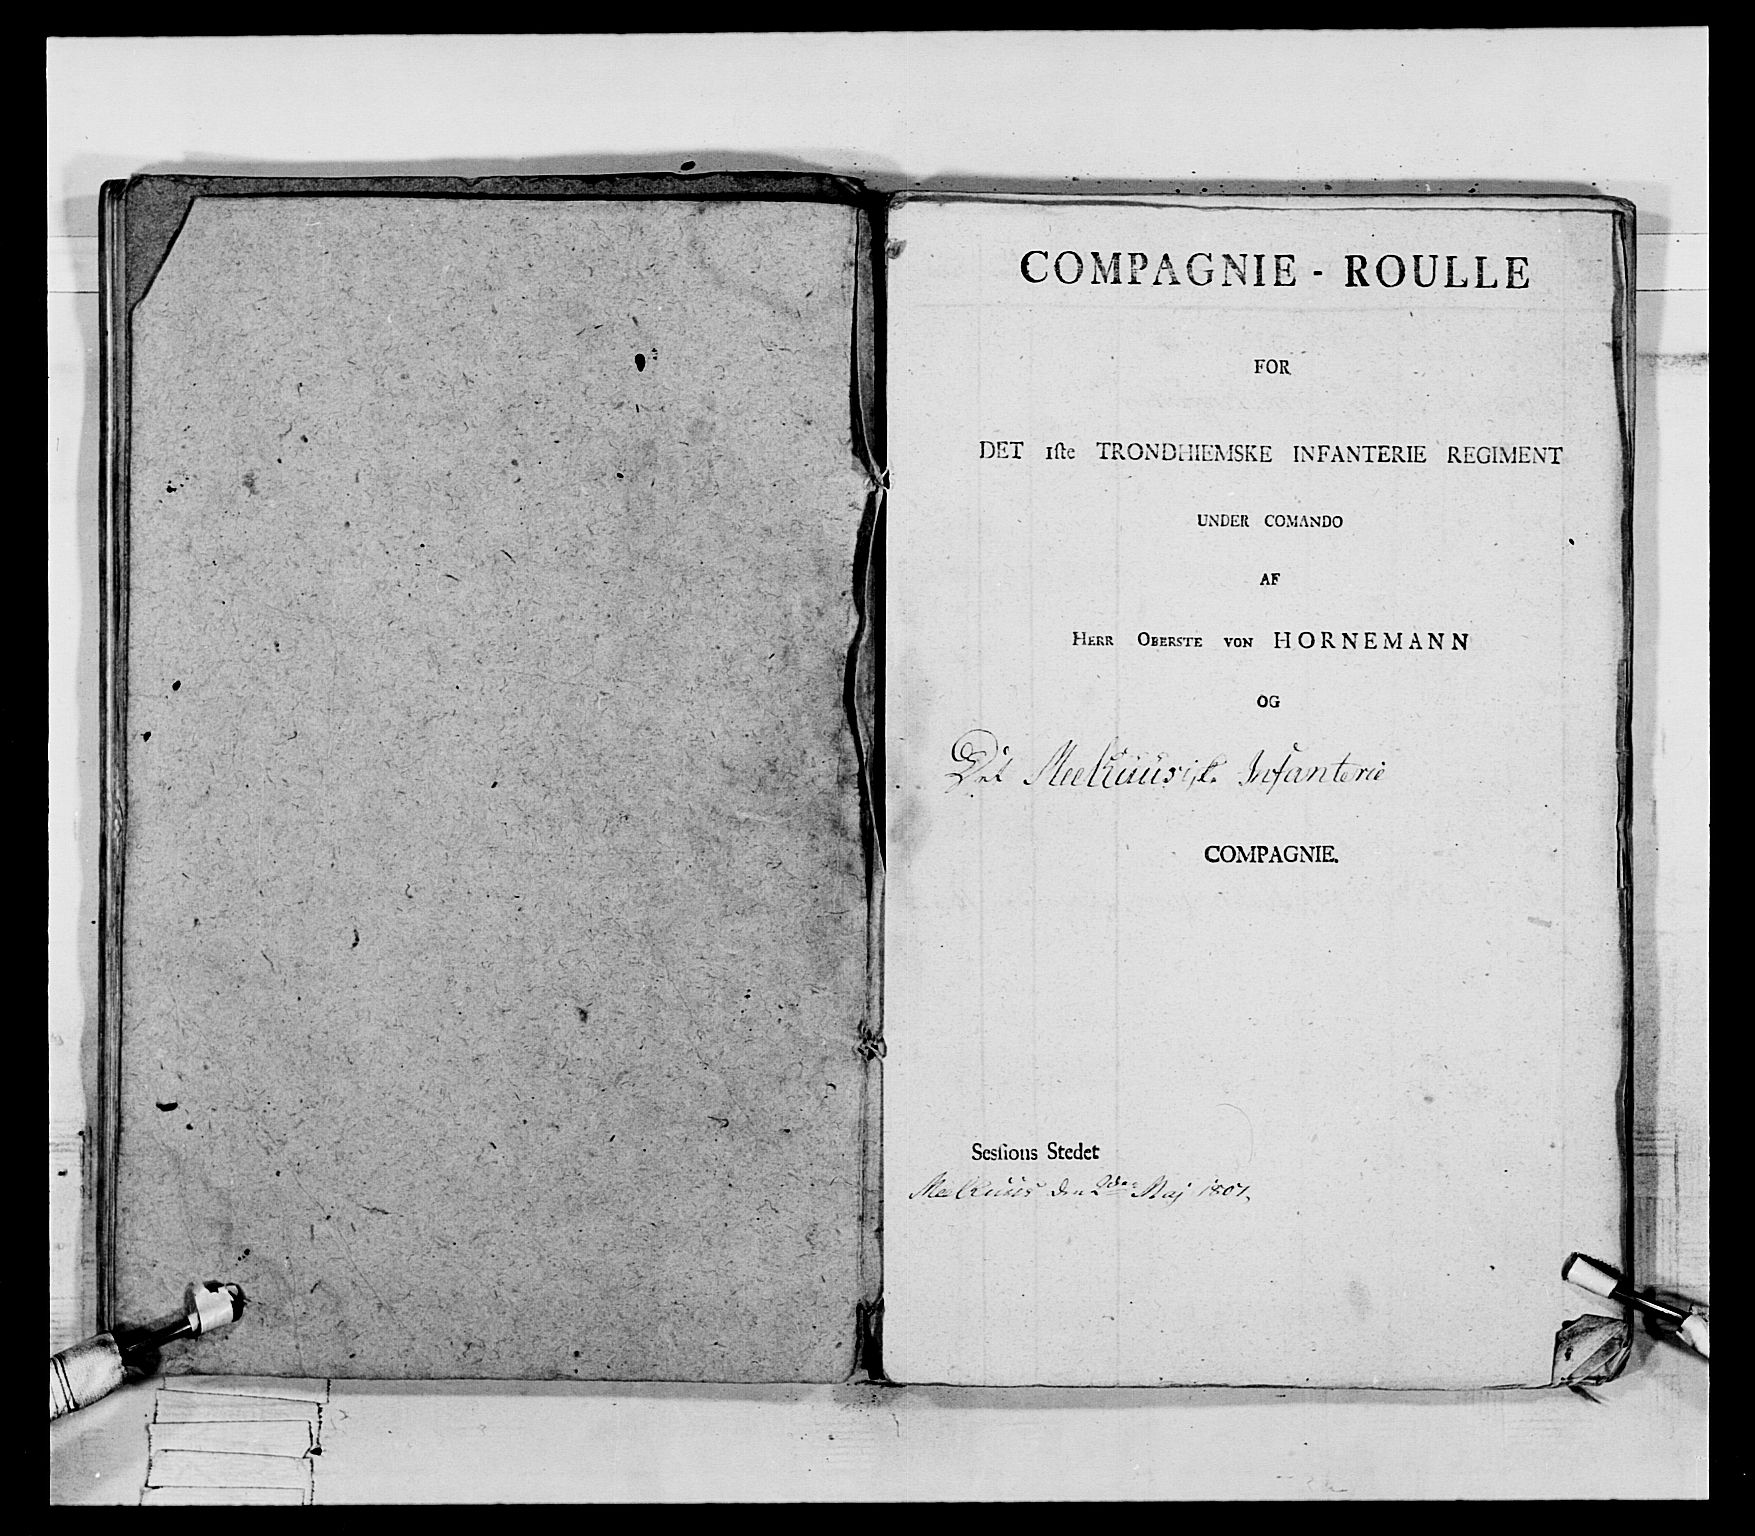 COMPAGNIE - ROULLE
FOR
DET 1ſte TRONDHIEMSKE INFANTERIE REGIMENT
UNDER COMANDO
AF
HERR OBERSTE VON HORNEMANN
OG
Det Meelhuusiske Infanterie
COMPAGNIE.
Sesſions Stedet
Meelhuus den 2den Maj 1801.